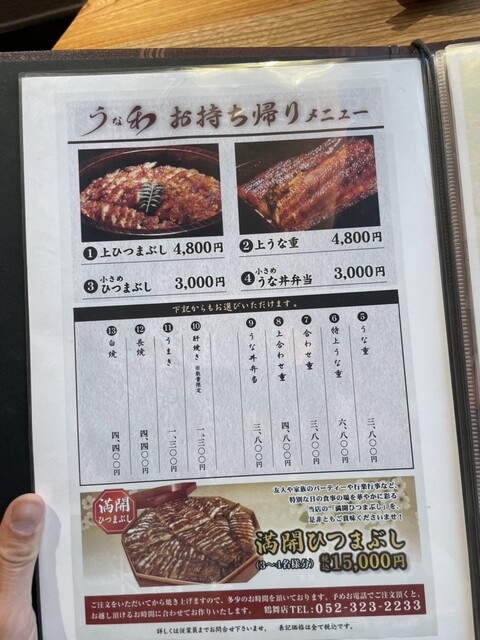 うな和 お持ち帰りメニュー
❶上ひつまぶし 4,800円
❷上うな重 4,800円
❸小さめ ひつまぶし 3,000円
❹小さめ うな丼弁当 3,000円
下記からもお選びいただけます。
❺うな重 三、八〇〇円
❻特上うな重 六、八〇〇円
❼合わせ重 三、八〇〇円
❽上合わせ重 四、八〇〇円
❾うな丼弁当 三、八〇〇円
❿肝焼き ※数量限定 一、三〇〇円
⓫うまき 一、三〇〇円
⓬長焼 四、四〇〇円
⓭白焼 四、四〇〇円
満開
ひつまぶし
友人や家族のパーティーや行楽行事など、
特別な日の食事の場を華やかに彩る
当店の「満開ひつまぶし」を、
是非ともご賞味くださいませ!
満開ひつまぶし
(3〜4名様分) 15,000円
ご注文をいただいてから焼き上げますので、多少のお時間を頂いております。予めお電話でご注文頂くと、
お越し頂けるお時間に合わせてお作りいたします。 鶴舞店TEL:052-323-2233
詳しくは従業員までお問合せ下さいませ。 表記価格は全て税込です。